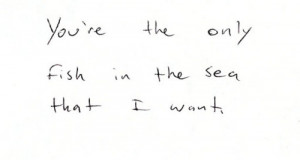 You're the only
fish in the sea
that I want.